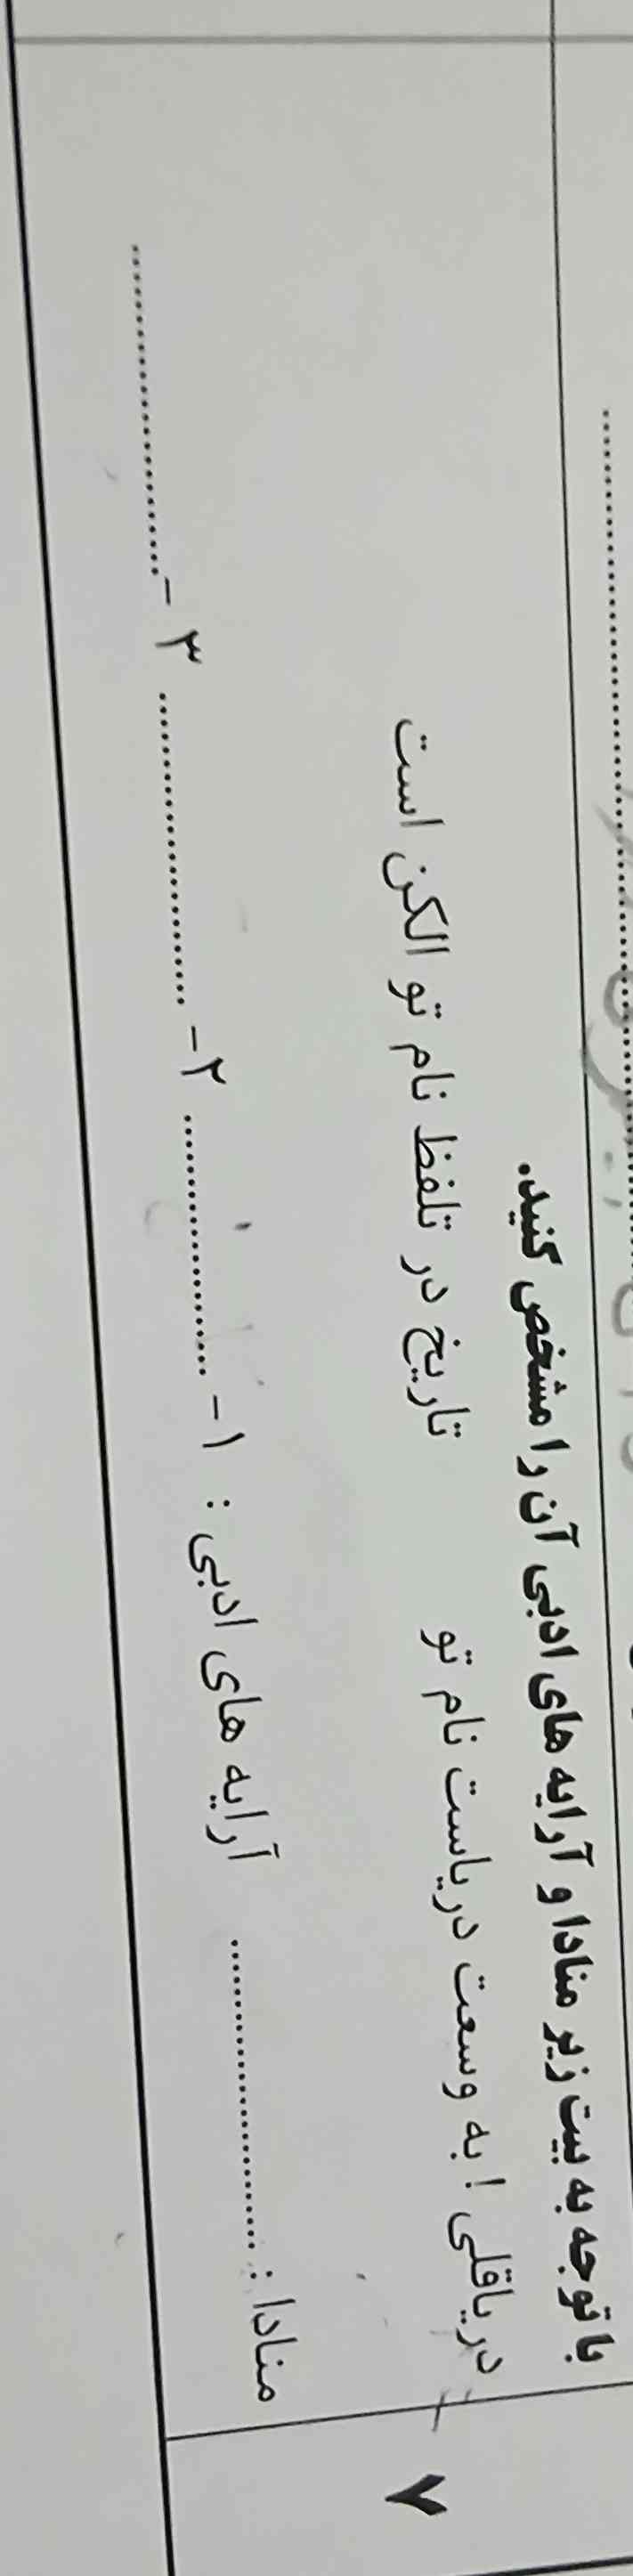 ۷
با توجه به بیت زیر منادا و آرایه های ادبی آن را مشخص کنید.
دریاقلی ! به وسعت دریاست نام تو تاریخ در تلفظ نام تو الکن است
منادا : .............................. آرایه های ادبی : ۱- .............................. ۲- .............................. ۳- ..............................